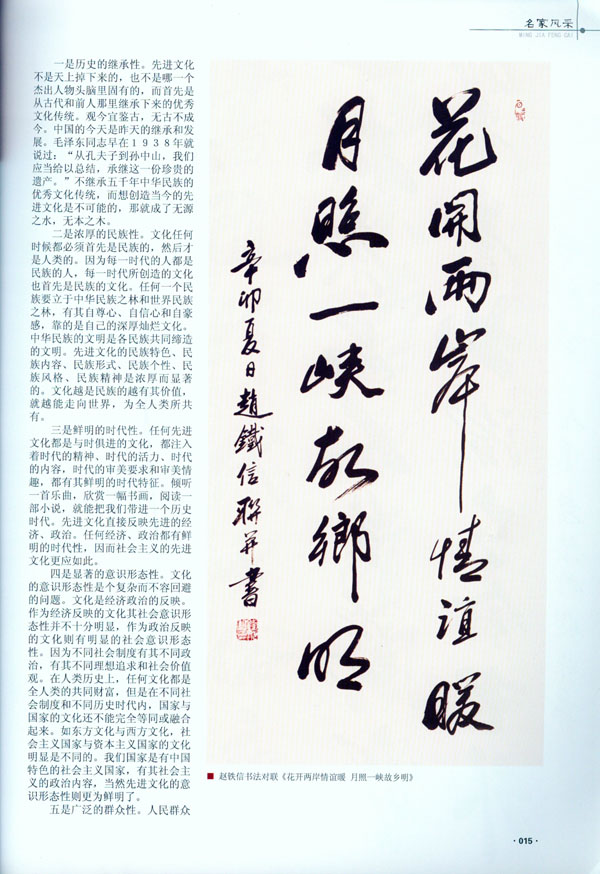 名家风采
MING JIA FENG CAI
一是历史的继承性。先进文化
不是天上掉下来的，也不是哪一个
杰出人物头脑里固有的，而首先是
从古代和前人那里继承下来的优秀
文化传统。观今宜鉴古，无古不成
今。中国的今天是昨天的继承和发
展。毛泽东同志早在１９３８年就
说过：“从孔夫子到孙中山，我们
应当给以总结，承继这一份珍贵的
遗产。”不继承五千年中华民族的
优秀文化传统，而想创造当今的先
进文化是不可能的，那就成了无源
之水，无本之木。
二是浓厚的民族性。文化任何
时候都必须首先是民族的，然后才
是人类的。因为每一时代的人都是
民族的人，每一时代所创造的文化
也首先是民族的文化。任何一个民
族要立于中华民族之林和世界民族
之林，有其自尊心、自信心和自豪
感，靠的是自己的深厚灿烂文化。
中华民族的文明是各民族共同缔造
的文明。先进文化的民族特色、民
族内容、民族形式、民族个性、民
族风格、民族精神是浓厚而显著
的。文化越是民族的越有其价值，
就越能走向世界，为全人类所共
有。
三是鲜明的时代性。任何先进
文化都是与时俱进的文化，都注入
着时代的精神、时代的活力、时代
的内容，时代的审美要求和审美情
趣，都有其鲜明的时代特征。倾听
一首乐曲，欣赏一幅书画，阅读一
部小说，就能把我们带进一个历史
时代。先进文化直接反映先进的经
济、政治。任何经济、政治都有鲜
明的时代性，因而社会主义的先进
文化更应如此。
四是显著的意识形态性。文化
的意识形态性是个复杂而不容回避
的问题。文化是经济政治的反映。
作为经济反映的文化其社会意识形
态性并不十分明显，作为政治反映
的文化则有明显的社会意识形态
性。因为不同社会制度有其不同政
治，有其不同理想追求和社会价值
观。在人类历史上，任何文化都是
全人类的共同财富，但是在不同社
会制度和不同历史时代内，国家与
国家的文化还不能完全等同或融合
起来。如东方文化与西方文化，社
会主义国家与资本主义国家的文化
明显是不同的。我们国家是有中国
特色的社会主义国家，有其社会主
义的政治内容，当然先进文化的意
识形态性则更为鲜明了。
五是广泛的群众性。人民群众
花開兩岸情誼暖
月照一峽故鄉明
辛卯夏日趙鐵信聯并書
赵铁信书法对联《花开两岸情谊暖 月照一峡故乡明》
·015·